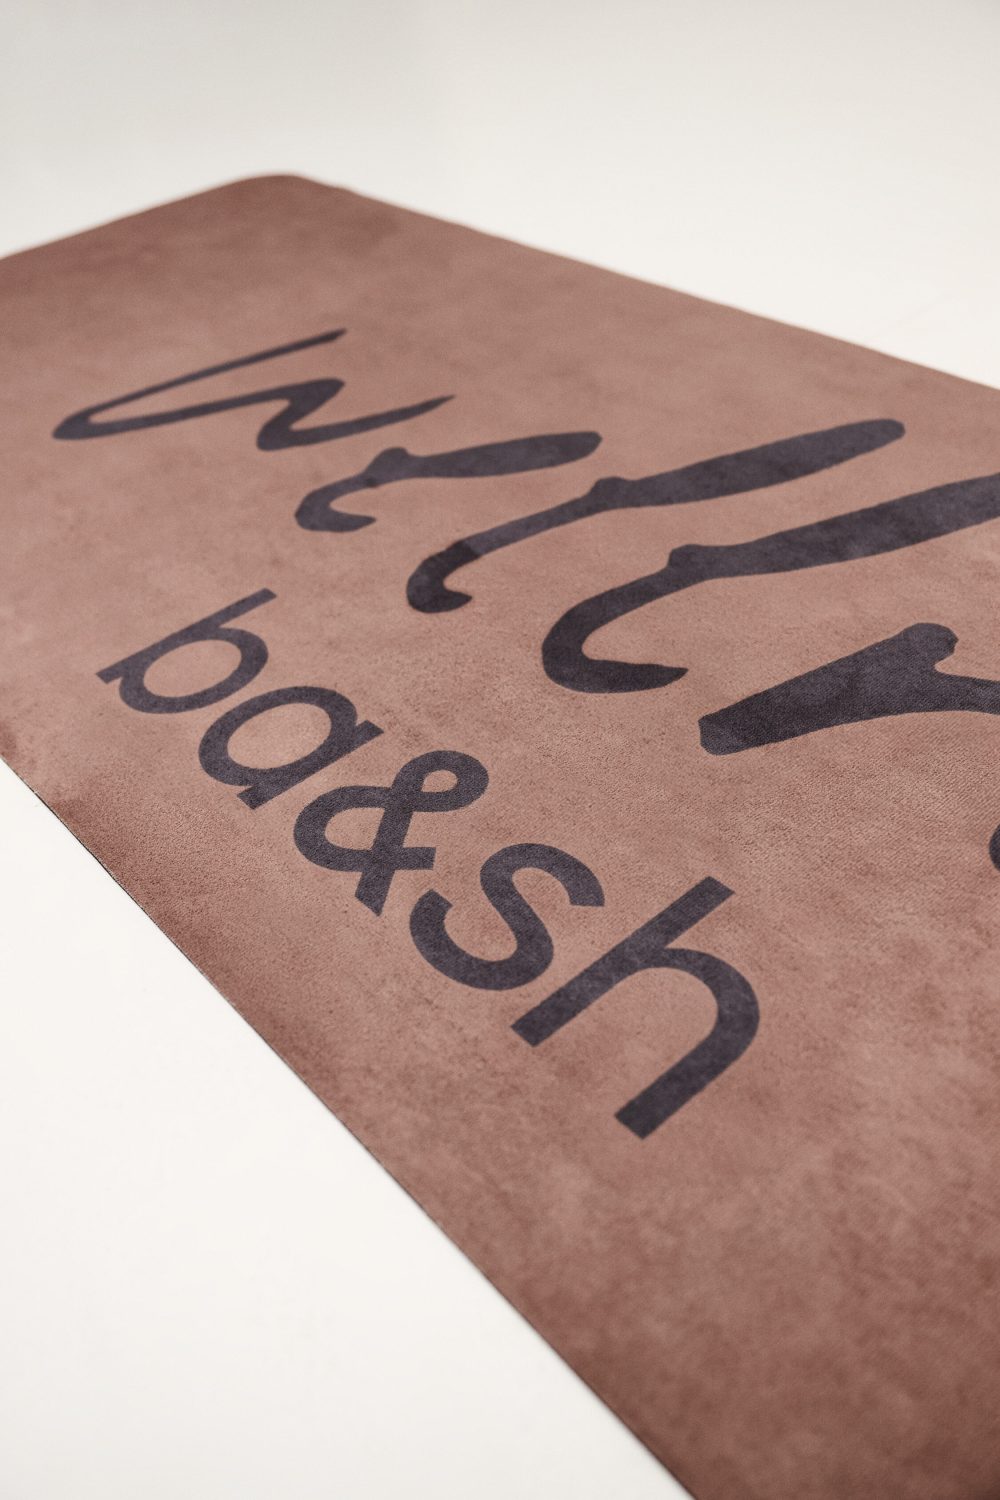 Well
ba&sh